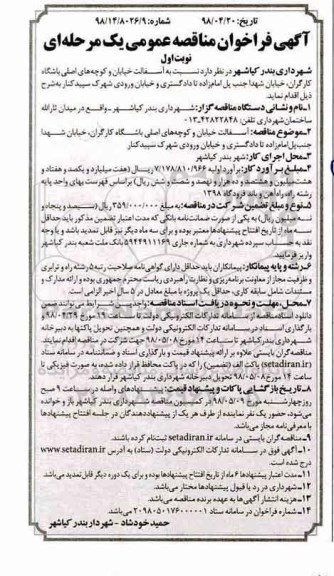 تاریخ: ۹۸/۰۴/۲۰ شماره: ۹۸/۱۴/۸۰۲۶/۹
آگهی فراخوان مناقصه عمومی یک مرحله‌ای
نوبت اول
شهرداری بندر کیاشهر در نظر دارد نسبت به آسفالت خیابان و کوچه‌های اصلی باشگاه
کارگران، خیابان شهدا جنب پل امام‌زاده تا دادگستری و خیابان ورودی شهرک سپیدکنار به شرح
ذیل اقدام نماید.
۱-نام و نشانی دستگاه مناقصه گزار: شهرداری بندر کیاشهر ـ واقع در میدان ثارالله
ساختمان شهرداری تلفن: ۴۲۸۲۲۸۴۸-۰۱۳
۲-موضوع مناقصه: آسفالت خیابان و کوچه‌های اصلی باشگاه کارگران، خیابان شهدا
جنب پل امام‌زاده تا دادگستری و خیابان ورودی شهرک سپیدکنار
۳-محل اجرای کار: شهر بندر کیاشهر
۴-مبلغ برآورد کار: برآورد اولیه ۷/۱۷۸/۸۱۰/۹۶۶ ریال (هفت میلیارد و یکصد و هفتاد و
هشت میلیون و هشتصد و ده هزار و نهصد و شصت و شش ریال) براساس فهرست بهای واحد پایه
رشته راه، راه‌آهن و باند فرودگاه ۱۳۹۸
۵-نوع و مبلغ تضمین شرکت در مناقصه: به مبلغ ۳۵۹/۰۰۰/۰۰۰ ریال (سیصد و پنجاه و
نه میلیون ریال) به یکی از صورت ضمانت‌نامه بانکی که مدت اعتبار تضمین مذکور باید حداقل
سه ماه از تاریخ افتتاح پیشنهادها معتبر بوده و برای سه ماه دیگر نیز قابل تمدید باشد و یا وجه
نقد به حساب سپرده شهرداری به شماره جاری ۵۹۴۴۹۱۱۱۶۹ بانک ملت شعبه بندر کیاشهر
واریز فرمایید.
۶-رشته و پایه پیمانکار: پیمانکاران باید حداقل دارای گواهی‌نامه صلاحیت رتبه ۵ رشته راه و ترابری
و ظرفیت مجاز از معاونت برنامه‌ریزی و نظارت راهبردی ریاست محترم جمهوری بوده و ارائه مدارک و
مستندات شامل سابقه کاری، حداقل یک پروژه با مبلغ معادل در ۵ سال اخیر الزامی است.
۷-محل، مهلت و نحوه دریافت اسناد مناقصه: واجدین شرایط می‌توانند ضمن
دانلود اسناد مناقصه از سامانه تدارکات الکترونیکی دولت تا ساعت ۱۹ مورخ ۹۸/۰۴/۲۹ و
بارگذاری اسناد در سامانه تدارکات الکترونیکی دولت و همچنین تحویل پاکتها به دبیرخانه
شهرداری بندر کیاشهر تا ساعت ۱۴ مورخ ۹۸/۰۵/۰۸ جهت شرکت در مناقصه اقدام نمایند.
مناقصه گران بایستی علاوه بر ارائه پیشنهاد قیمت و بارگذاری اسناد و ضمانتنامه در سامانه ستاد
(setadiran.ir)، پاکت الف (تضمین) را که در پاکت محافظ قرار داده شده، به صورت فیزیکی تا
ساعت ۱۴ مورخ ۹۸/۰۵/۰۸ تحویل دبیرخانه شهرداری بندر کیاشهر قرار دهند.
۸-تاریخ بازگشایی پاکات و پیشنهاد قیمت: پیشنهادهای واصله در ساعت ۹ صبح
روز چهارشنبه مورخ ۹۸/۰۵/۰۹ در کمیسیون مناقصه شهرداری بندر کیاشهر باز و خوانده
می‌شود، حضور یک نفر نماینده از طرف هر یک از پیشنهاددهندگان در جلسه افتتاح پیشنهادها
با معرفی‌نامه مجاز می‌باشد.
۹-مناقصه گران بایستی در سامانه setadiran.ir ثبت‌نام کرده باشند.
۱۰-آگهی فوق در سامانه تدارکات الکترونیکی دولت (ستاد) به آدرس www.setadiran.ir
درج شده است.
۱۱-مدت اعتبار پیشنهادها ۶ ماه از تاریخ افتتاح پیشنهادها بوده و برای یک دوره دیگر قابل تمدید می‌باشد.
۱۲-شهرداری در رد یا قبول پیشنهادها مختار می‌باشد.
۱۳-هزینه انتشار آگهی‌ها به عهده برنده مناقصه می‌باشد.
۱۴-شماره فراخوان در سامانه ستاد ۲۰۹۸۰۵۰۱۷۶۰۰۰۰۰۱ می‌باشد.
حمید خودشاد - شهردار بندر کیاشهر